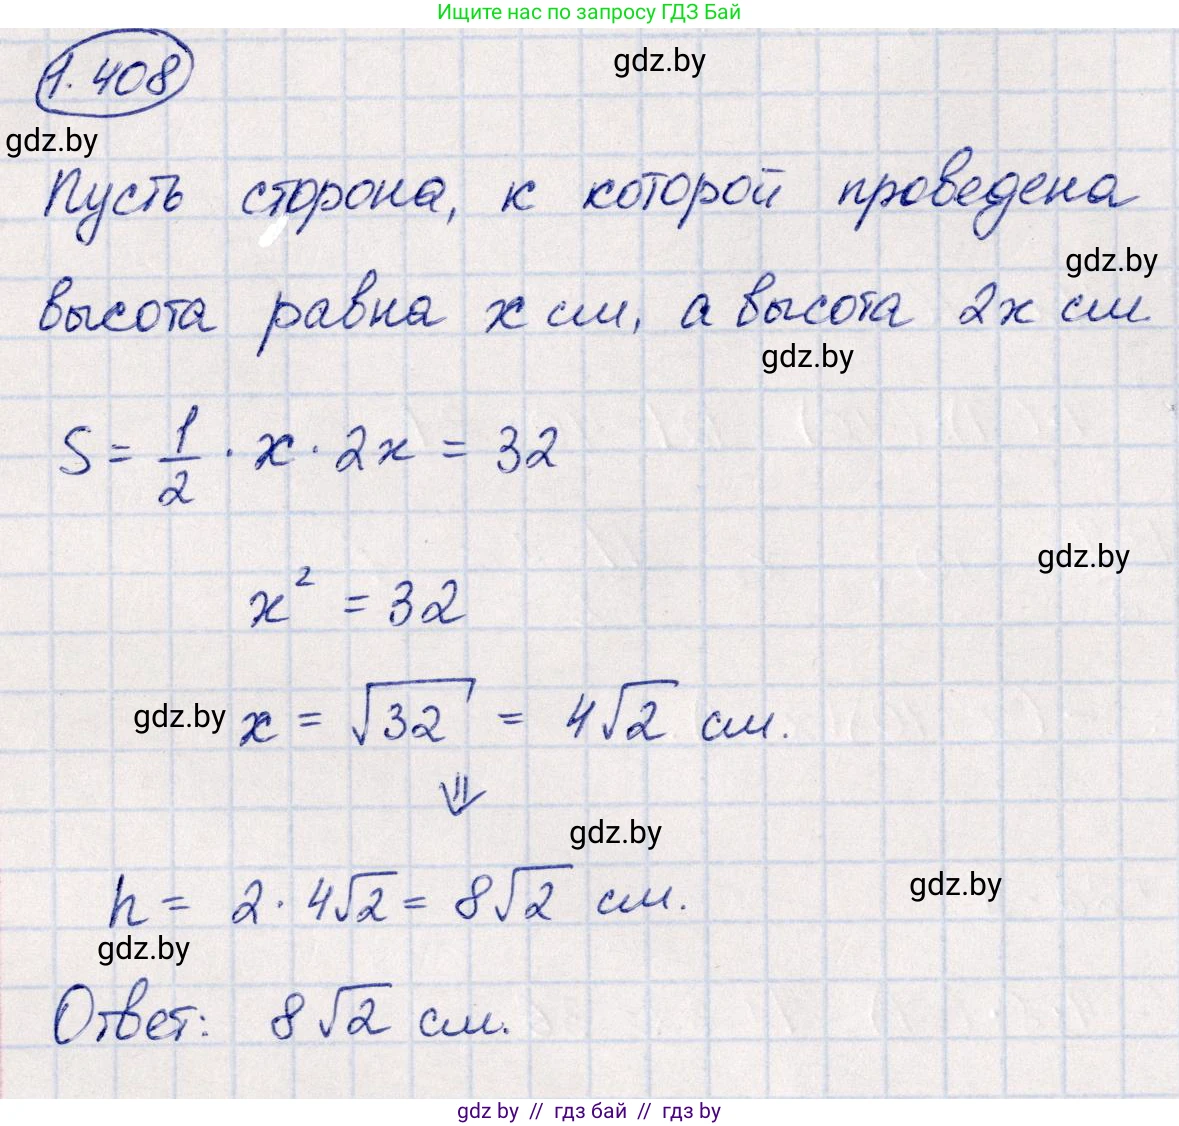 Ищите нас по запросу ГДЗ Бай
1.408
gdz.by
gdz.by
Пусть сторона, к которой проведена
gdz.by
высота равна x см, а высота 2x см.
gdz.by
S = 1/2 · x · 2x = 32
gdz.by
x² = 32
gdz.by
x = √32 = 4√2 см.
⇓
gdz.by
gdz.by
h = 2 · 4√2 = 8√2 см.
gdz.by
Ответ: 8√2 см.
gdz by // гдз бай // гдз by